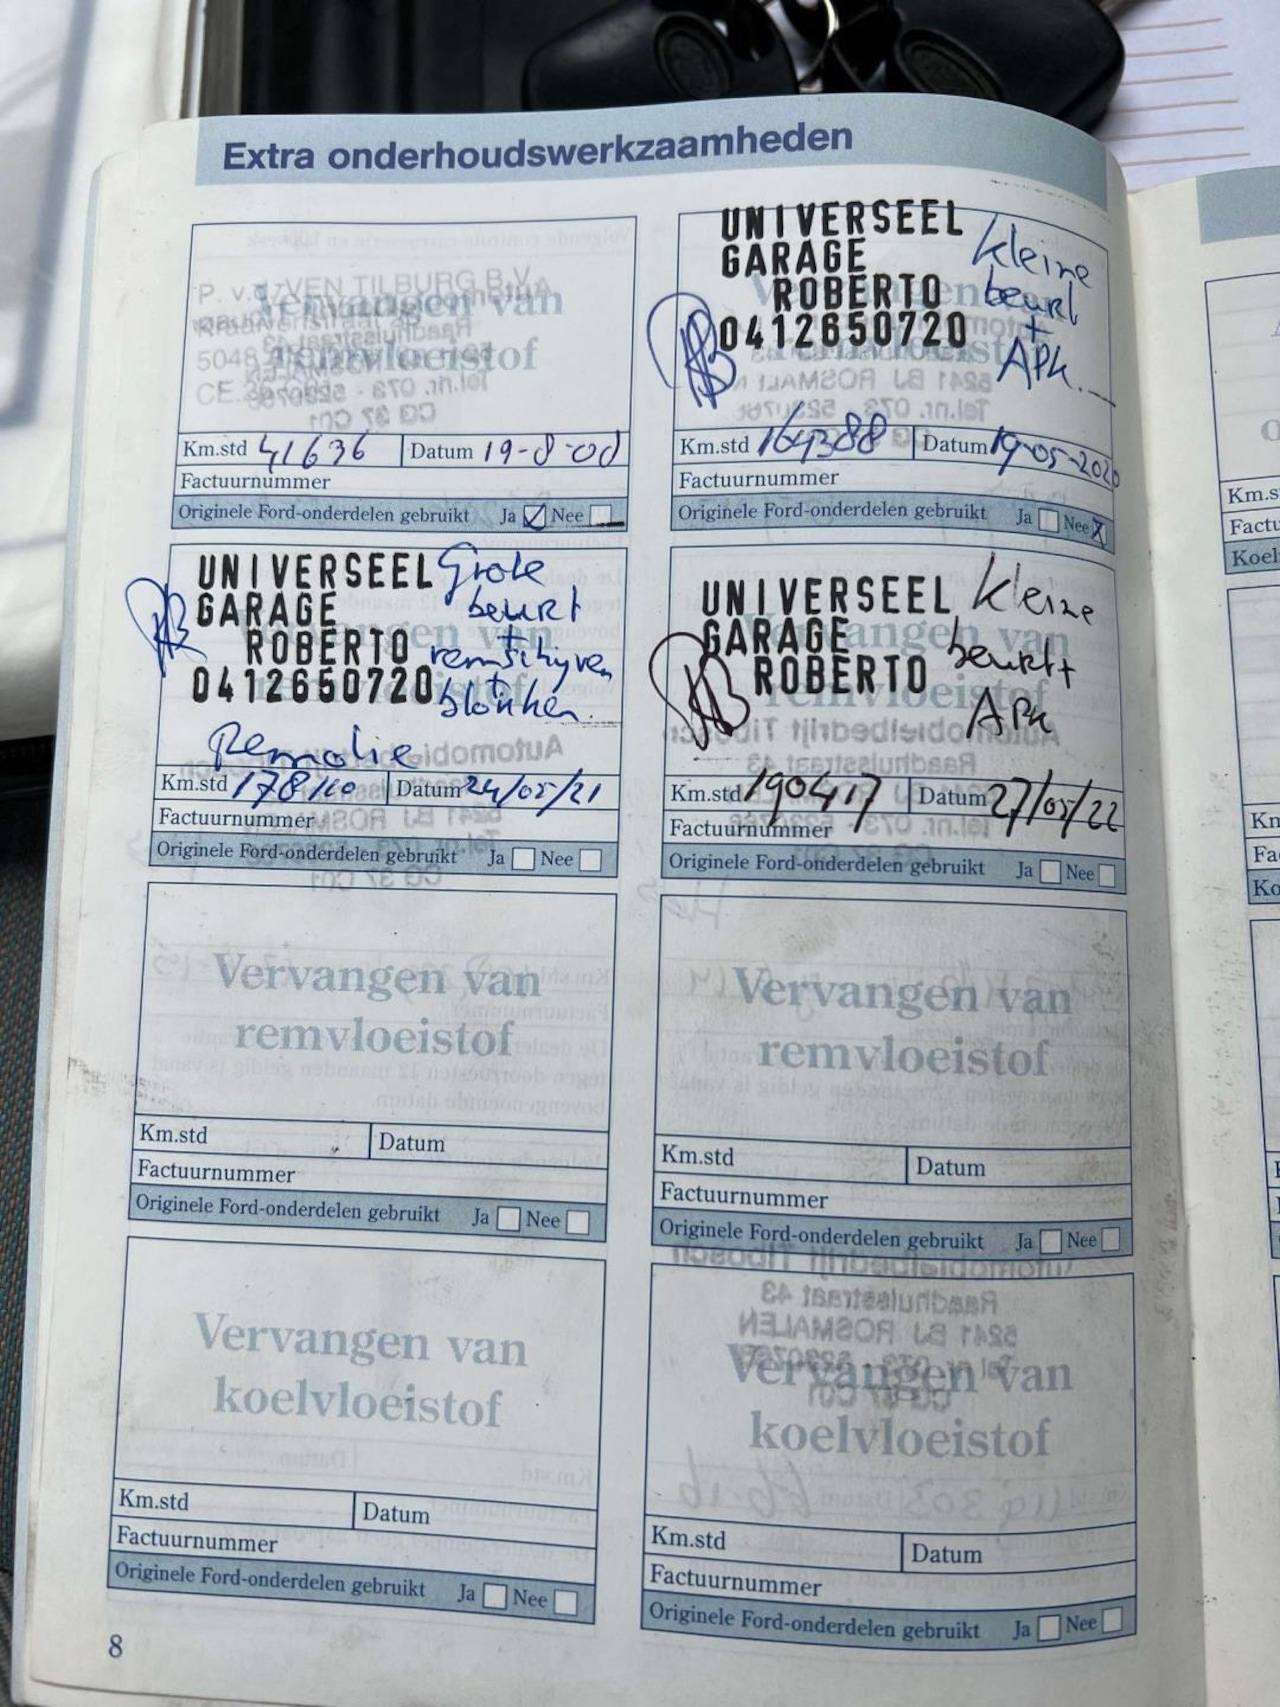 Extra onderhoudswerkzaamheden
P. v.d. VEN TILBURG B.V.
Vervangen van
remvloeistof
5048
Km.std 41636 Datum 19-8-08
Factuurnummer
Originele Ford-onderdelen gebruikt Ja Nee
UNIVERSEEL
GARAGE
ROBERTO
0412650720
kleine
beurt
+
APK.
Km.std 164388 Datum 19-05-2020
Factuurnummer
Originele Ford-onderdelen gebruikt Ja Nee X
UNIVERSEEL
GARAGE
ROBERTO
0412650720
Grote
beurt
+
remschijven
+
blokken.
Remolie
Km.std 178110 Datum 24/05/21
Factuurnummer
Originele Ford-onderdelen gebruikt Ja Nee
UNIVERSEEL
GARAGE
ROBERTO
kleine
beurt+
APK
Vervangen van
remvloeistof
Km.std 190417 Datum 27/05/22
Factuurnummer
Originele Ford-onderdelen gebruikt Ja Nee
Vervangen van
remvloeistof
Km.std Datum
Factuurnummer
Originele Ford-onderdelen gebruikt Ja Nee
Vervangen van
remvloeistof
Km.std Datum
Factuurnummer
Originele Ford-onderdelen gebruikt Ja Nee
Vervangen van
koelvloeistof
Km.std Datum
Factuurnummer
Originele Ford-onderdelen gebruikt Ja Nee
Vervangen van
koelvloeistof
Km.std Datum
Factuurnummer
Originele Ford-onderdelen gebruikt Ja Nee
8